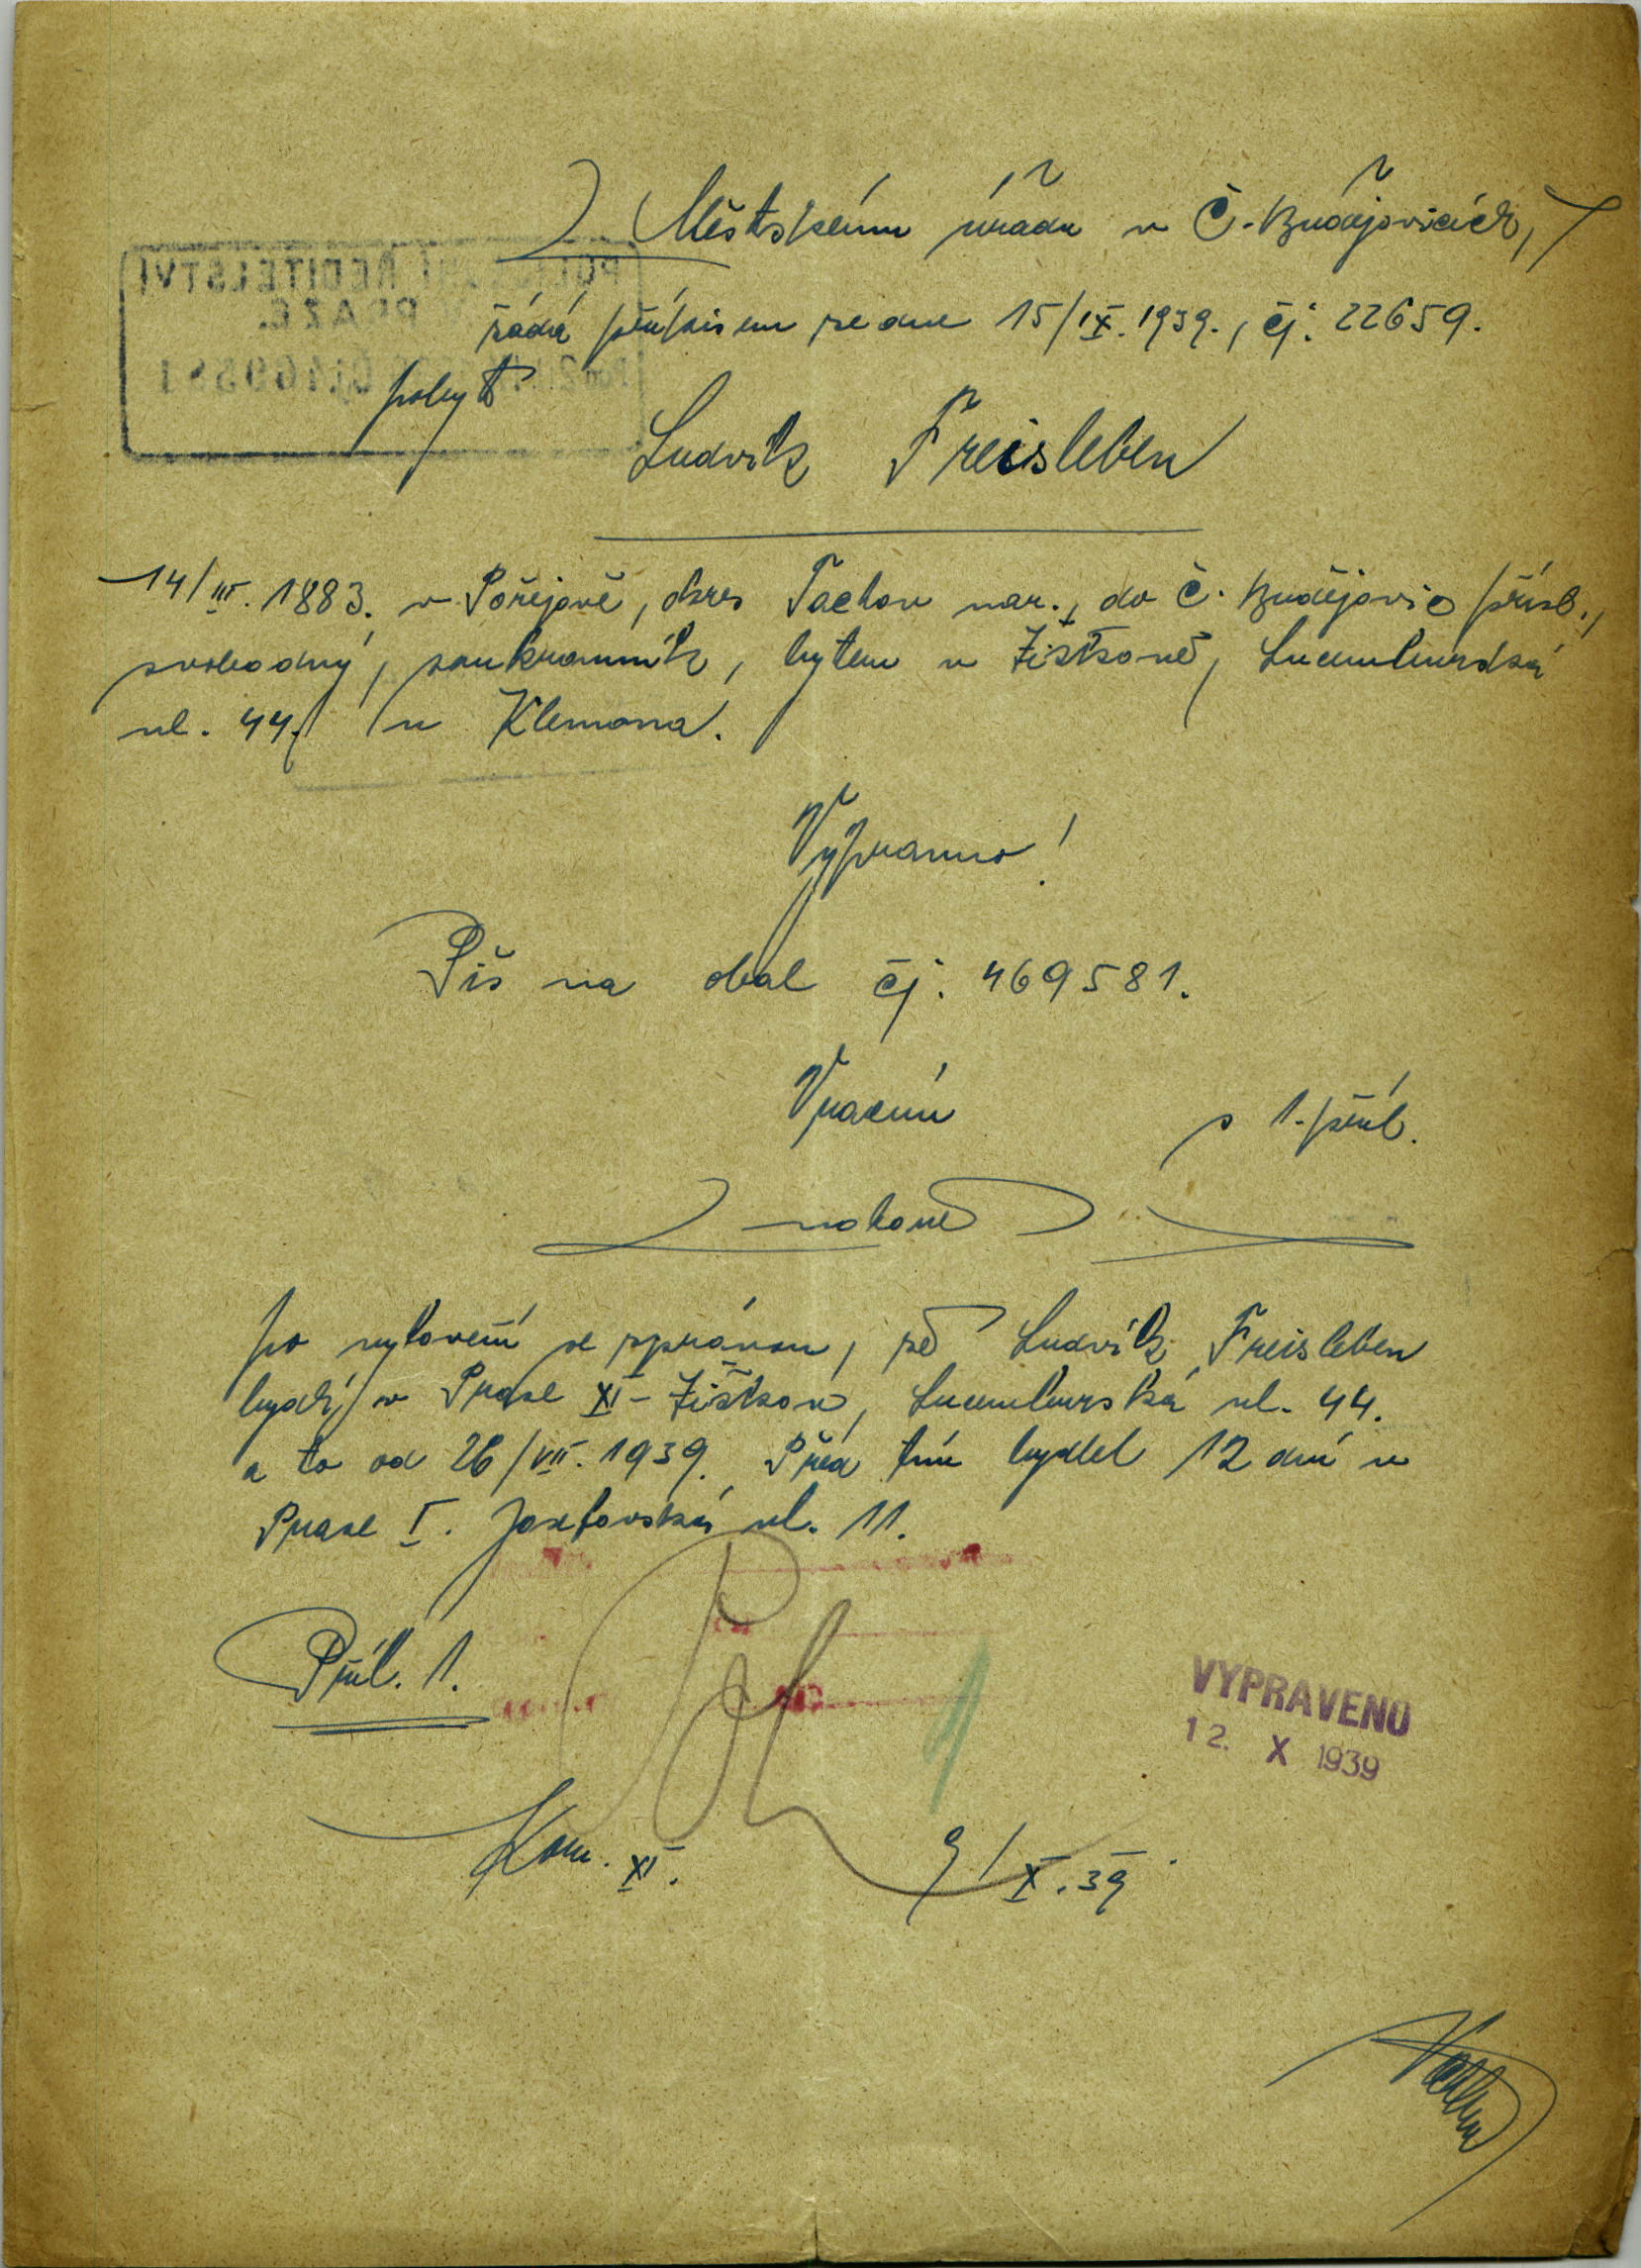 Městskému úřadu v Č. Budějovicích,
žádá přípisem ze dne 15/IX. 1939., čj. 22659.
pobyt
Ludvík Freisleben
14/III. 1883. v Pořejově, okres Tachov nar., do Č. Budějovic přísl.,
svobodný, soukromník, bytem v Žižkově, Lucemburská
ul. 44. u Klemona.
Vypraveno!
Piš na obal čj. 469581.
Vracím s 1. příl.
po vyšetření se zprávou, že Ludvík Freisleben
bydlí v Praze XI - Žižkov, Lucemburská ul. 44.
a to od 26/VII. 1939. Před tím bydlel 12 dní v
Praze I. Josefovská ul. 11.
Příl. 1.
VYPRAVENO
12. X 1939
Kom. XI. 9/X. 39